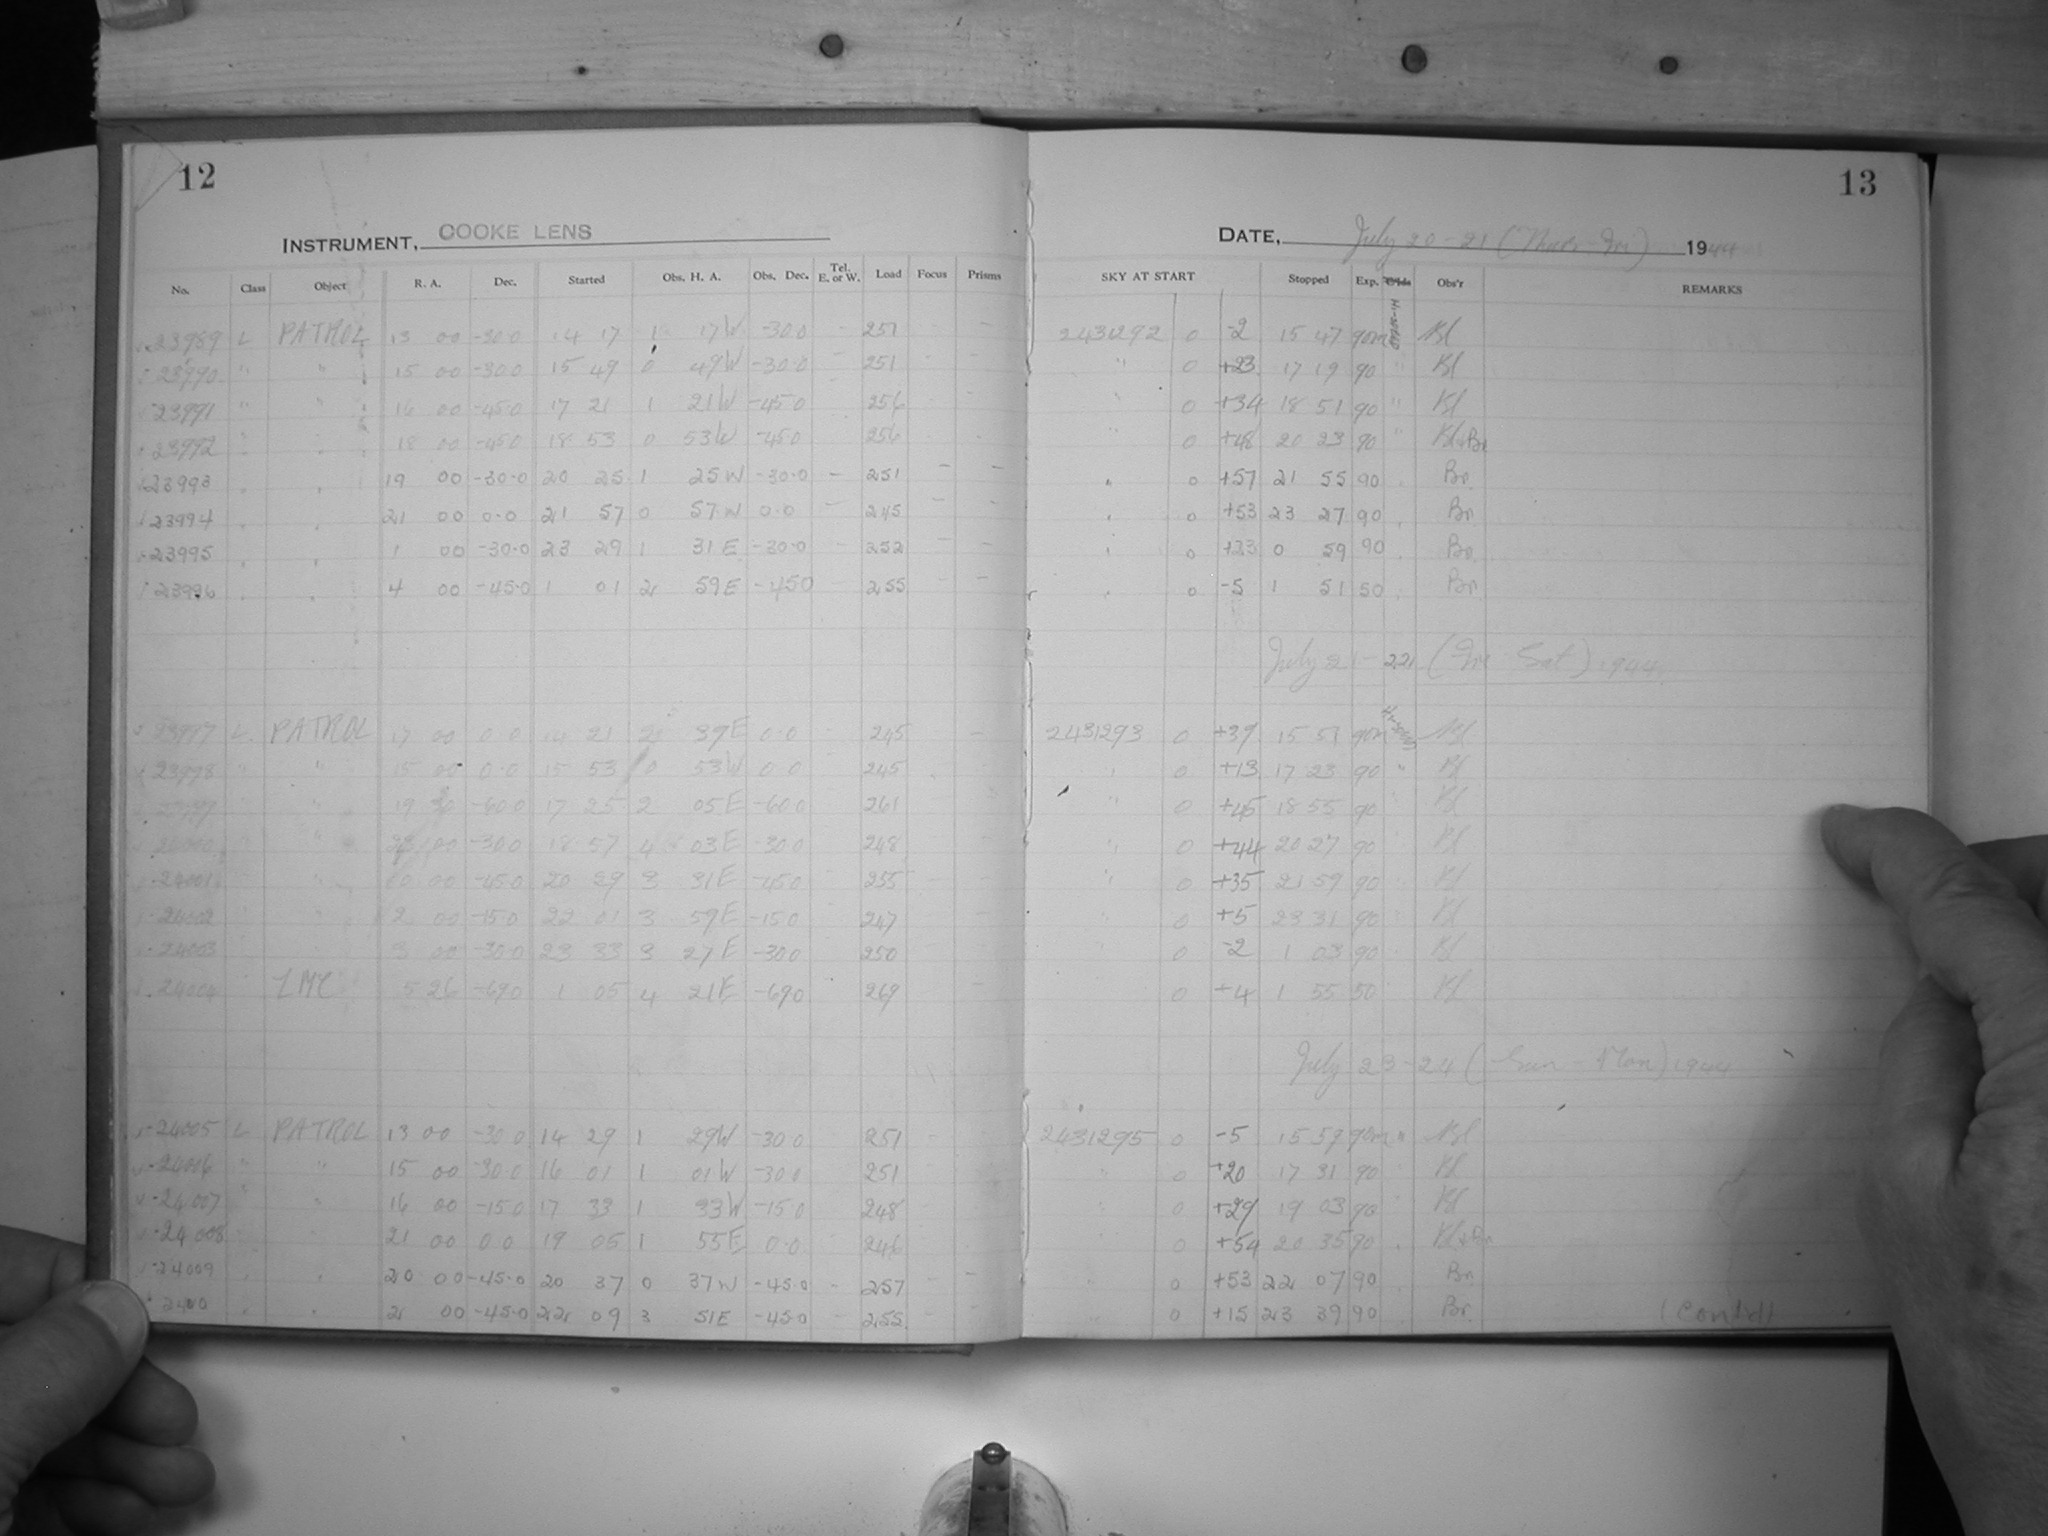 12
13
INSTRUMENT, COOKE LENS
DATE, July 20-21 (Thurs-Fri) 1944
No. Class Object R. A. Dec. Started Obs. H. A. Obs. Dec. Tel. E. or W. Load Focus Prisms SKY AT START Stopped Exp. Obs'r REMARKS
23989 L PATROL 13 00 -30.0 14 17 1 17W -30.0 - 251 - - 2431292 0 -2 15 47 90m Hi-speed Bl
23990 " " 15 00 -30.0 15 49 0 49W -30.0 - 251 - - " 0 +23 17 19 90 " Bl
23991 " " 16 00 -45.0 17 21 1 21W -45.0 - 256 - - " 0 +34 18 51 90 " Bl
23992 " " 18 00 -45.0 18 53 0 53W -45.0 256 - - " 0 +48 20 23 90 " Bl+Br
23993 " " 19 00 -30.0 20 25 1 25W -30.0 - 251 - - " 0 +57 21 55 90 " Br.
23994 " " 21 00 0.0 21 57 0 57W 0.0 - 245 - - " 0 +53 23 27 90 " Br.
23995 " " 1 00 -30.0 23 29 1 31E -30.0 - 252 - - " 0 +33 0 59 90 " Br.
23996 " " 4 00 -45.0 1 01 2 59E -45.0 - 255 - - " 0 -5 1 51 50 " Br.
July 21-22 (Fri Sat) 1944
23997 L PATROL 17 00 0.0 14 21 2 39E 0.0 - 245 - 2431293 0 +39 15 51 90m Hi-speed Bl
23998 " " 15 00 0.0 15 53 0 53W 0.0 245 - 0 +13 17 23 90 " Bl
23999 " 19 30 -60.0 17 25 2 05E -60.0 261 " 0 +45 18 55 90 Bl
24000 " 23 00 -30.0 18 57 4 03E -30.0 248 " 0 +44 20 27 90 Bl
24001 " 0 00 -45.0 20 29 3 31E -45.0 255 - - " 0 +35 21 59 90 Bl
24002 " 2 00 -15.0 22 01 3 59E -15.0 247 - " 0 +5 23 31 90 Bl
24003 3 00 -30.0 23 33 3 27E -30.0 250 - " 0 -2 1 03 90 Bl
24004 LMC 5 26 -69.0 1 05 4 21E -69.0 269 - - 0 +4 1 55 50 Bl
July 23-24 (Sun-Mon) 1944
24005 L PATROL 13 00 -30.0 14 29 1 29W -30.0 251 - 2431295 0 -5 15 59 90m " Bl
24006 " " 15 00 -30.0 16 01 1 01W -30.0 251 0 +20 17 31 90 Bl
24007 " " 16 00 -15.0 17 33 1 33W -15.0 248 0 +29 19 03 90 Bl
24008 21 00 0.0 19 05 1 55E 0.0 246 0 +54 20 35 90 Bl+Br
24009 " " 20 00 -45.0 20 37 0 37W -45.0 - 257 - - 0 +53 22 07 90 Br.
2400 " " 2 00 -45.0 22 09 3 51E -45.0 - 255 - - 0 +15 23 39 90 Br.
(Contd)